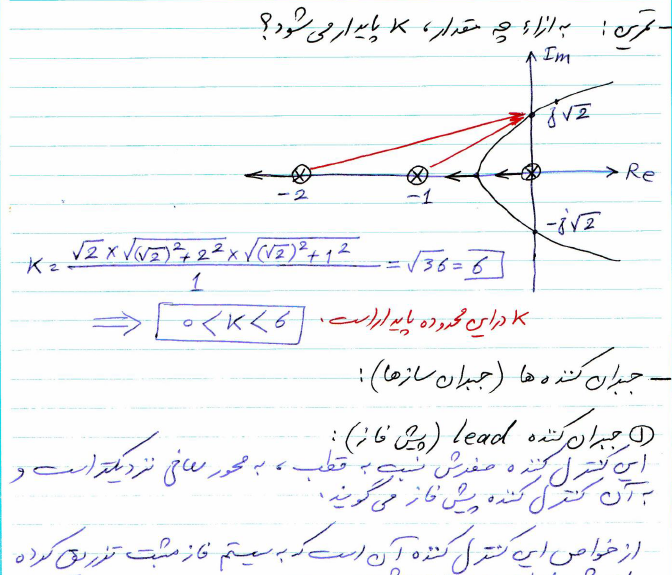 - تمرین: به ازاء چه مقدار، K پایدار می شود؟
Im
j√2
Re
-2
-1
-j√2
K = √2 × √((√2)²+2²) × √((√2)²+1²) / 1 = √36 = 6
⇒ 0 < K < 6 K در این محدوده پایدار است.
- جبران کننده ها (جبران سازها):
① جبران کننده lead (پیش فاز):
این کنترل کننده صفرش نسبت به قطب، به محور نزدیکتر است و
به آن کنترل کننده پیش فاز می گویند.
از خواص این کنترل کننده آن است که به سیستم فاز مثبت تزریق کرده